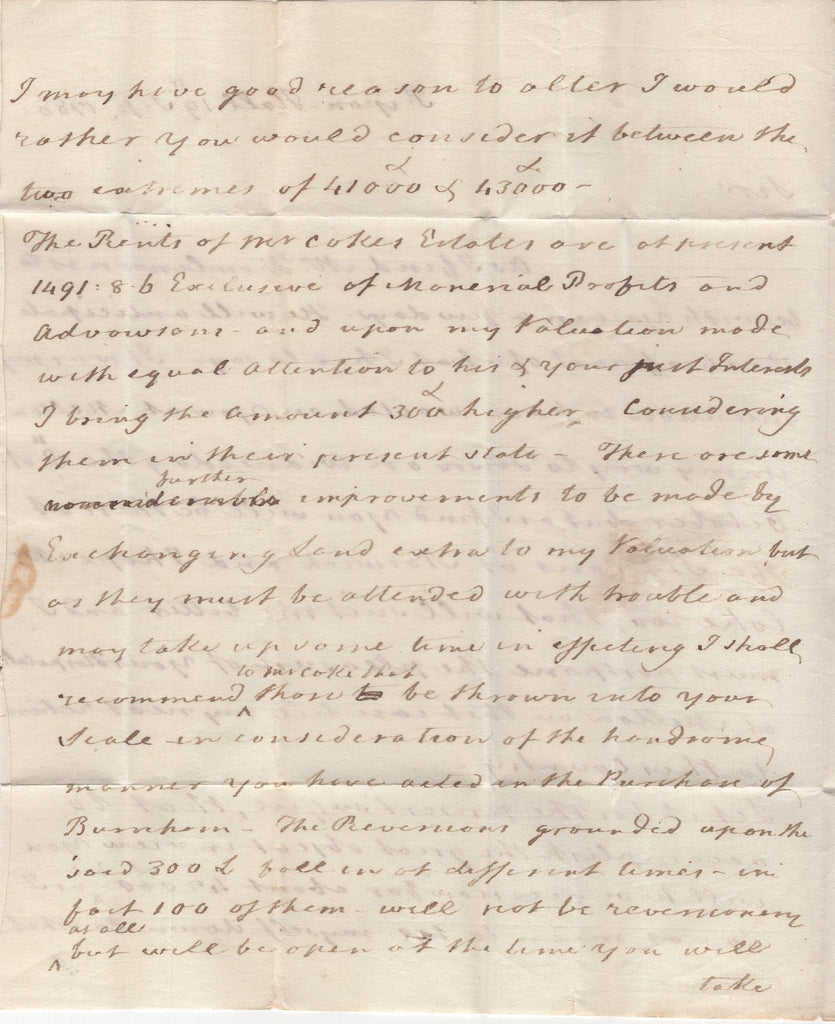 I may have good reason to alter I would
rather you would consider it between the
two extremes of 41000£ & 43000£ -
The Rents of Mr Cokes Estates are at present
1491: 8. 6 Exclusive of Manerial Profits and
Advowsons - and upon my Valuation made
with equal Attention to his & your just Interests
I bring the Amount 300£ higher, Considering
them in their present state - There are some
further
improvements to be made by
Exchanging Land extra to my Valuation but
as they must be attended with trouble and
may take up some time in effecting I shall
to Mr Coke that
recommend ^ those to be thrown into your
Scale in consideration of the handsome
manner you have acted in the Purchase of
Burnham - The Reversions grounded upon the
said 300£ fall in at different times - in
fact 100 of them - will not be reversionary
at all
^ but will be open at the time you will
take